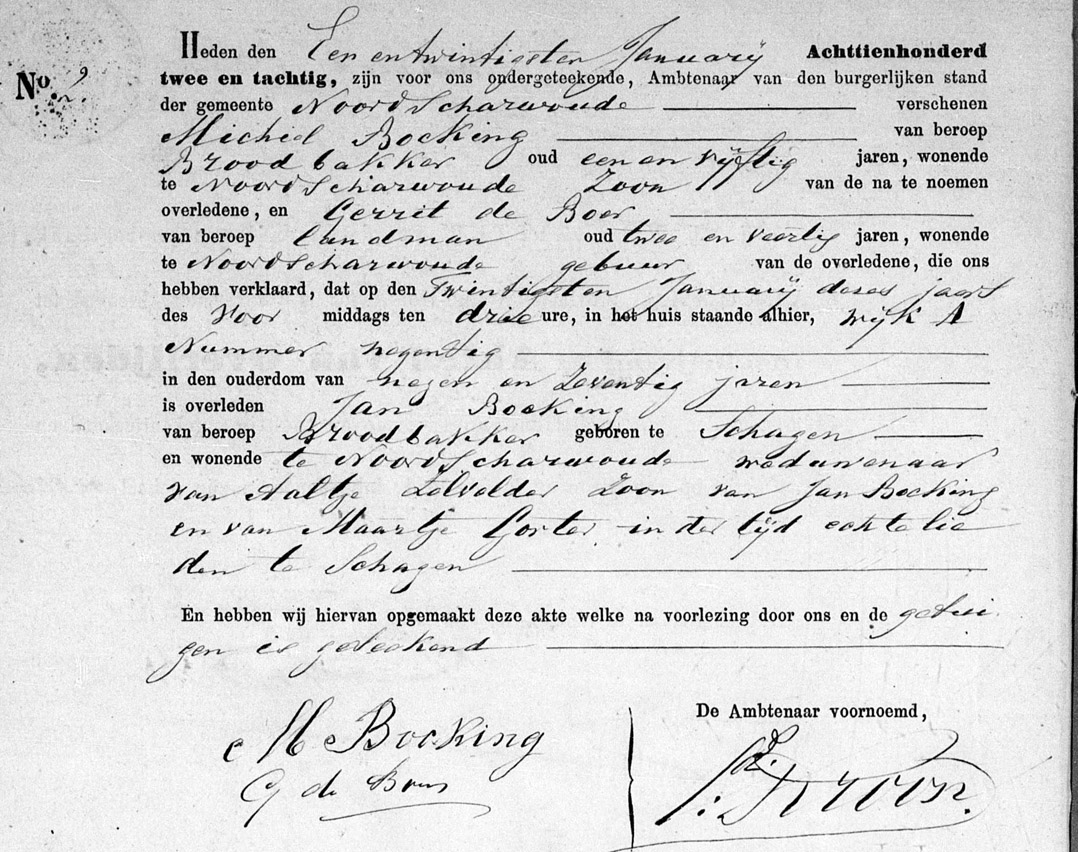 Heden den Een en twintigsten Januarij Achttienhonderd
No. 2. twee en tachtig, zijn voor ons ondergeteekende, Ambtenaar van den burgerlijken stand
der gemeente Noordscharwoude verschenen
Michiel Bocking van beroep
Broodbakker oud een en vijftig jaren, wonende
te Noordscharwoude Zoon van de na te noemen
overledene, en Gerrit de Boer
van beroep landman oud twee en veertig jaren, wonende
te Noordscharwoude gebuur van de overledene, die ons
hebben verklaard, dat op den Twintigsten Januarij deses jaars
des Voor middags ten drie ure, in het huis staande alhier, wijk A
Nummer negentig
in den ouderdom van negen en Zeventig jaren
is overleden Jan Bocking
van beroep Broodbakker geboren te Schagen
en wonende te Noordscharwoude weduwenaar
van Aaltje Zelvelder Zoon van Jan Bocking
en van Maartje Gorter in der tijd echte lie
den te Schagen
En hebben wij hiervan opgemaakt deze akte welke na voorlezing door ons en de getui
gen is geteekend
De Ambtenaar voornoemd,
M Bocking
G de Boer
Kroon.